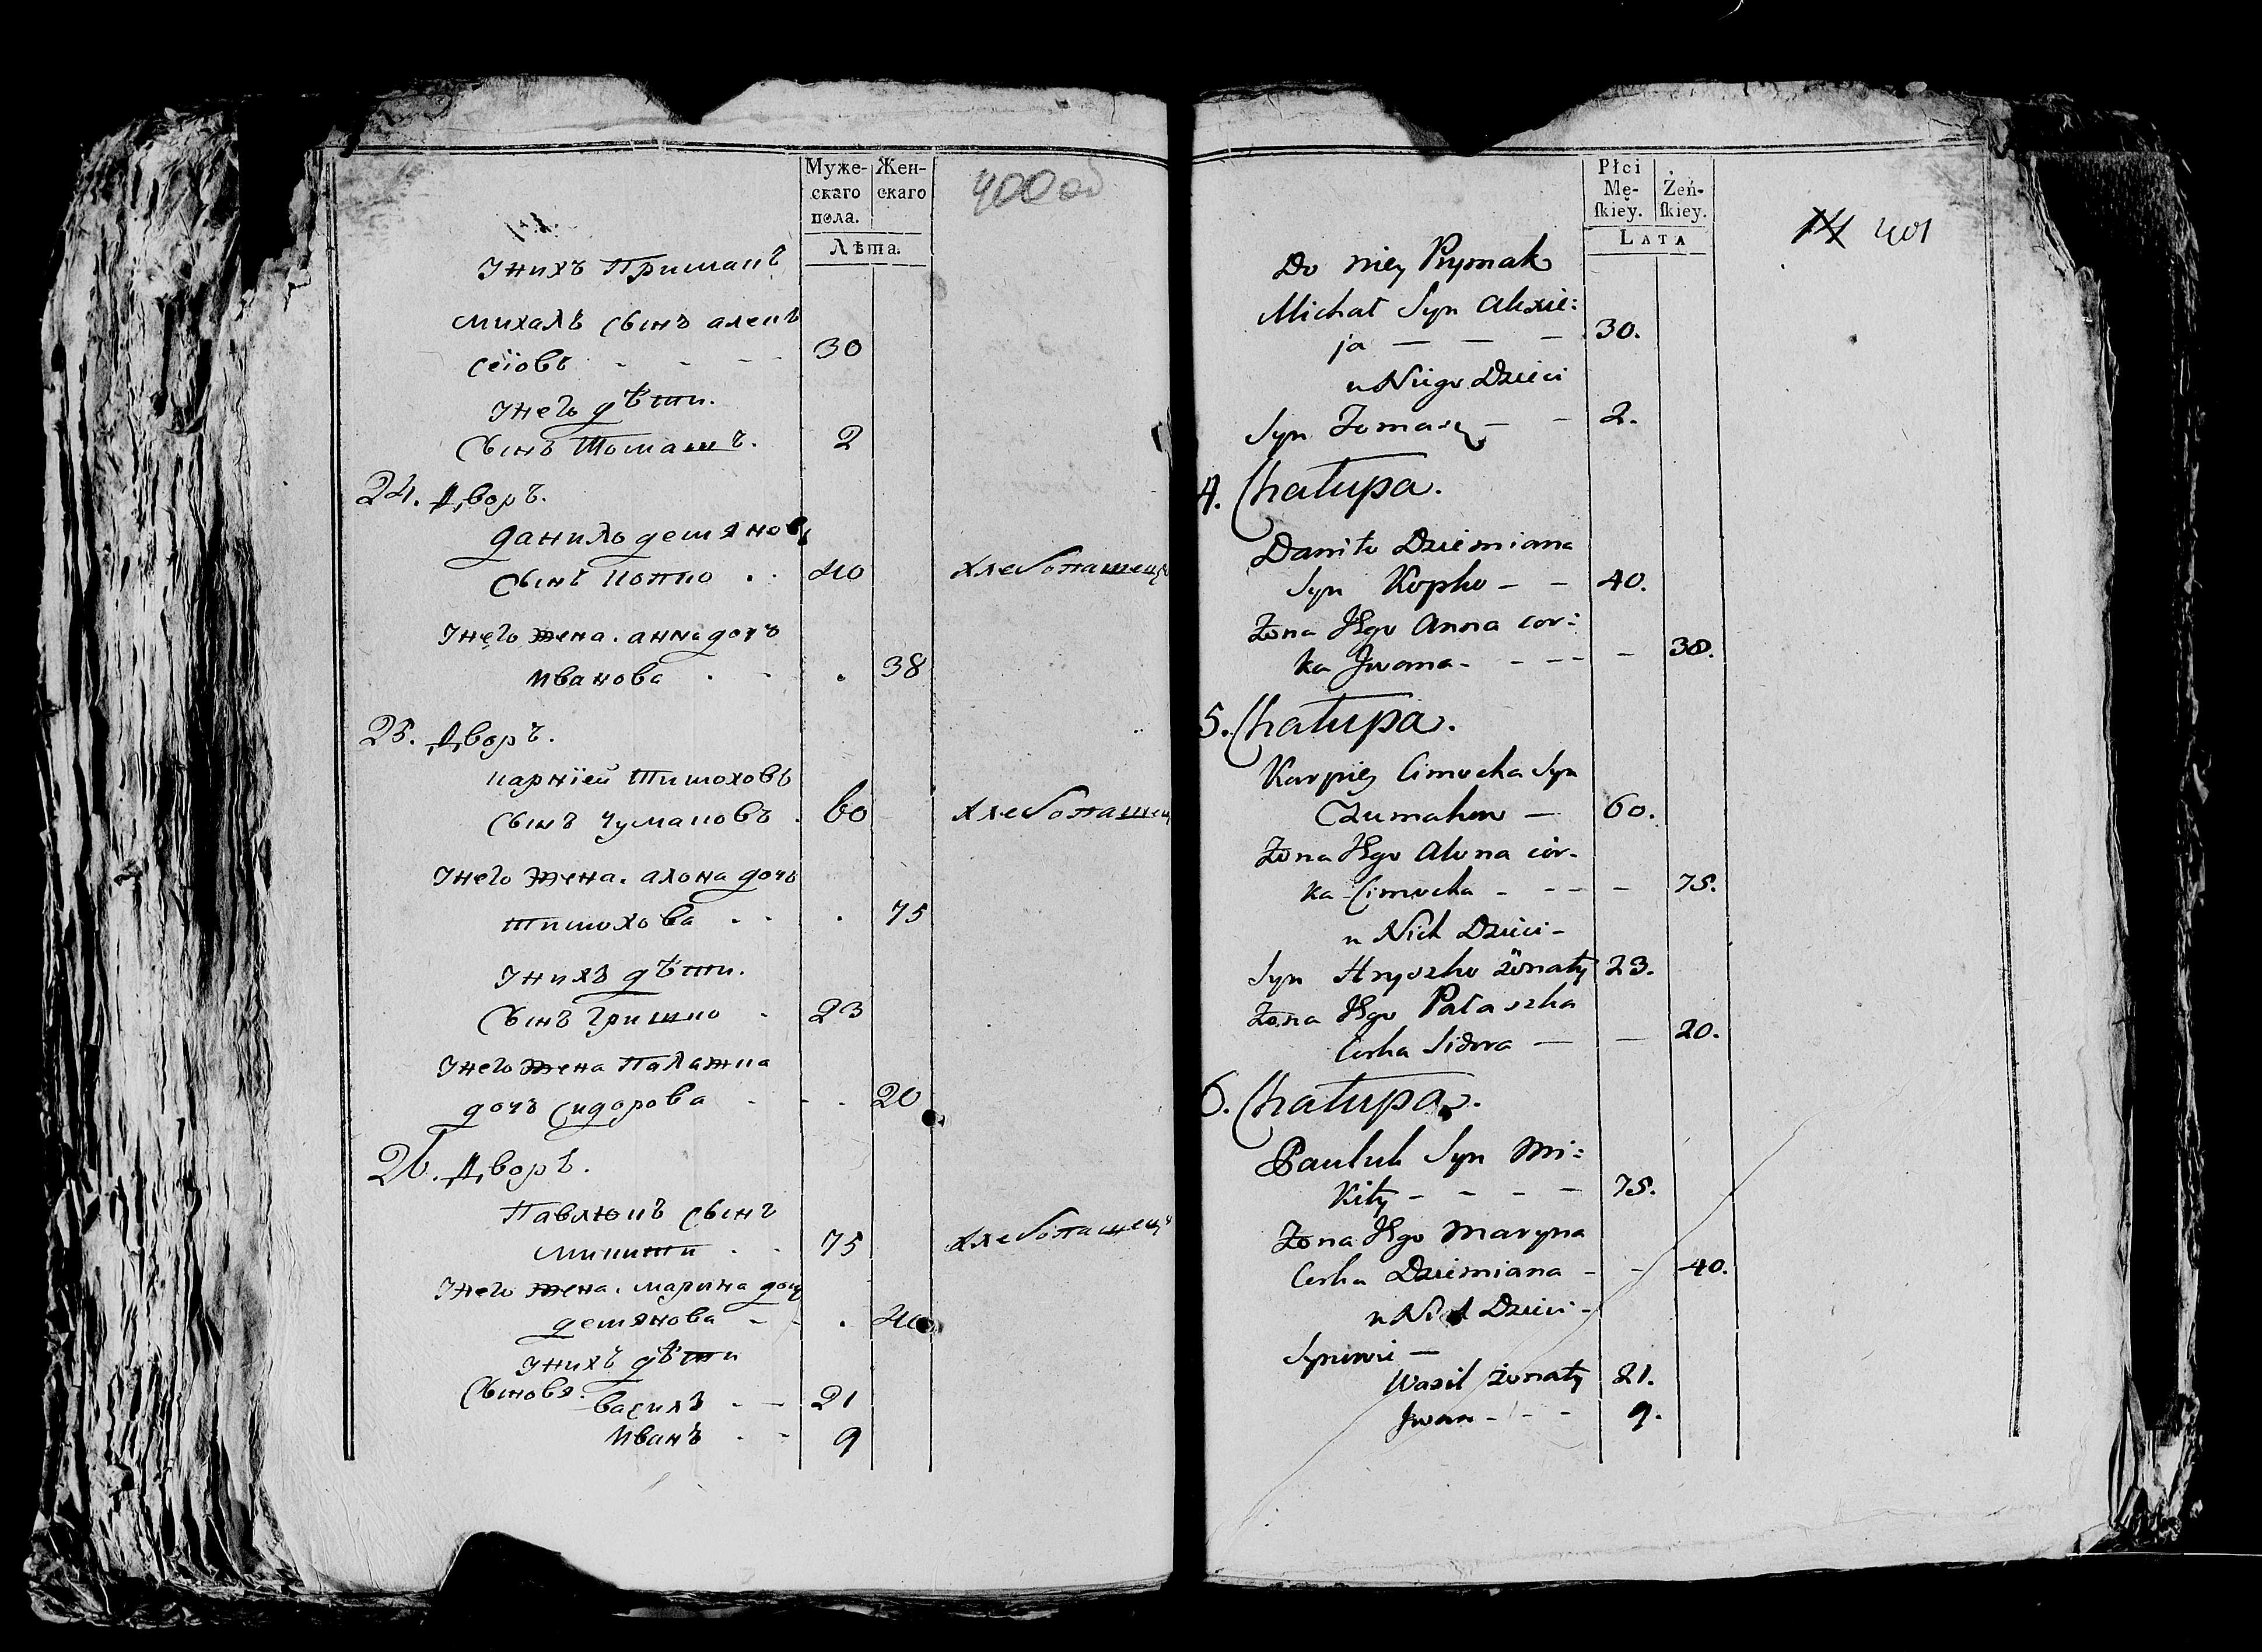 Муже- Жен-
скаго скаго
пола.
Лѣта.
400 об
Ꙋнихъ Примакъ
михалъ сынъ алек
сеіовъ - - - 30
Ꙋнего дѣти.
Сынъ Томашъ. 2
24. Дворъ.
данило демяновъ
сынъ копко . . 40 хлебопашецъ
Ꙋнего жена. анна дочъ
иванова . . . 38
25. Дворъ.
карпїей Тимоховъ
сынъ чумаковъ . 60 хлебопашец
Ꙋнего жена. алона дочъ
тимохова . . . 75
Ꙋнихъ дѣти.
Сынъ Гришко . 23
Ꙋнего жена Палажка
дочъ сидорова - - . 20
26. Дворъ.
Павлюкъ сынъ
микити . . 75 хлебопашецъ
Ꙋнего жена. марина доч
демянова - - . 40
Ꙋнихъ дѣти
Сыновя.
василъ - - 21
иванъ . - 9
Płci
Mę- Żeń-
ſkiey. ſkiey.
LATA
401
Do niey Prymak
Michał Syn Alexie:
ja — — — 30.
u Niego Dzieci
Syn Tomasz — - 2.
4. Chałupa.
Daniło Dziemiana
Syn Kopko - - 40.
Żona Jego Anna cor:
ka Jwana - - -- - 38.
5. Chałupa.
Karpiey Cimocha Syn
Czumakow — 60.
Żona Jego Alona cór-
ka Cimocha - - - - 75.
u Nich Dzieci -
Syn Hryszko żonaty 23.
Żona Jego Pałaszka
Corka Sidora — — 20.
6. Chałupa.
Pauluk Syn Mi:
kity - - - - 75.
Żona Jego Maryna
Corka Dziemiana - - 40.
u Nich Dzieci -
Synowie —
Wasil żonaty 21.
Jwan - - - 9.